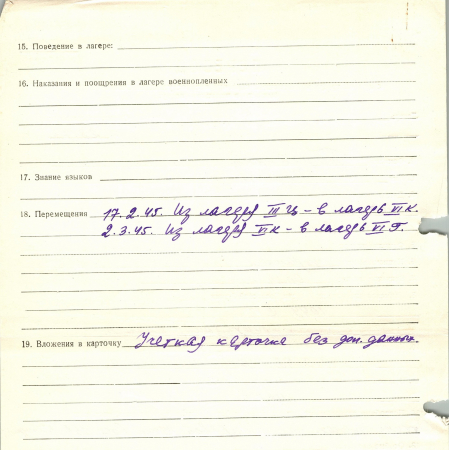 15. Поведение в лагере:
16. Наказания и поощрения в лагере военнопленных
17. Знание языков
18. Перемещения 17.2.45. Из лагеря III Ц – в лагерь VI К.
2.3.45. Из лагеря VI К – в лагерь VI Г.
19. Вложения в карточку Учетная карточка без доп. данных.